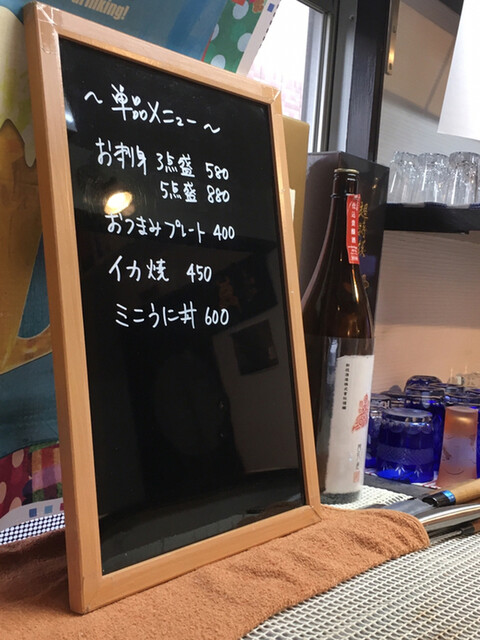 rinking!
～単品メニュー～
お刺身 3点盛 580
5点盛 880
おつまみプレート 400
イカ焼 450
ミニうに丼 600